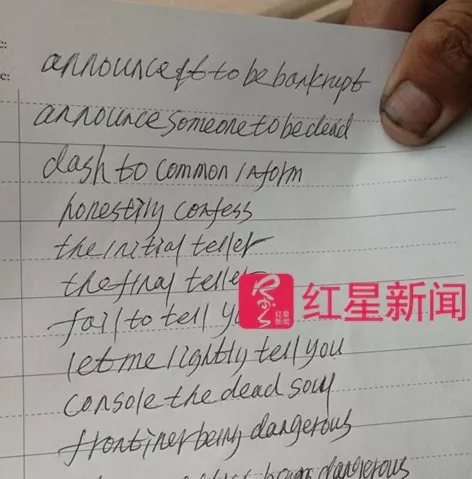 announce it to be bankrupt
announce someone to be dead
dash to common inform
honestily confess
the initial teller
the final teller
fail to tell
红星新闻
红星新闻
let me lightly tell you
console the dead soul
frontiner being dangerous
being dangerous